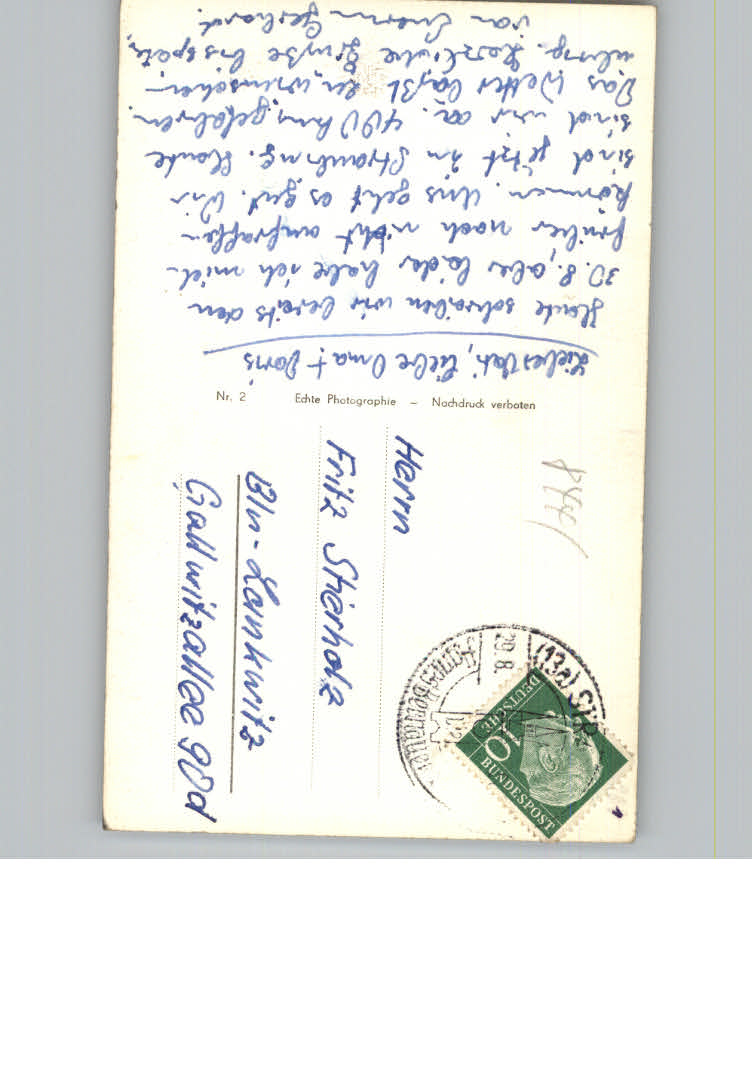 Liebes Vati, liebe Oma + Doris,
Heute schreiben wir bereits den
30. 8., aber leider habe ich mich
früher noch nicht aufraffen
können. Uns geht es gut. Wir
sind jetzt in Straubing. Heute
sind wir ca. 400 km gefahren.
Das Wetter läßt zu wünschen
übrig. Herzliche Grüße bis spät.
von Euerm Gerhard.
Nr. 2 Echte Photographie – Nachdruck verboten
Herrn
Fritz Stierholz
Bln-Lankwitz
Gallwitzallee 90d
(13a) STR
29.8.
Agnes Bernauer
DEUTSCHE
BUNDESPOST
10